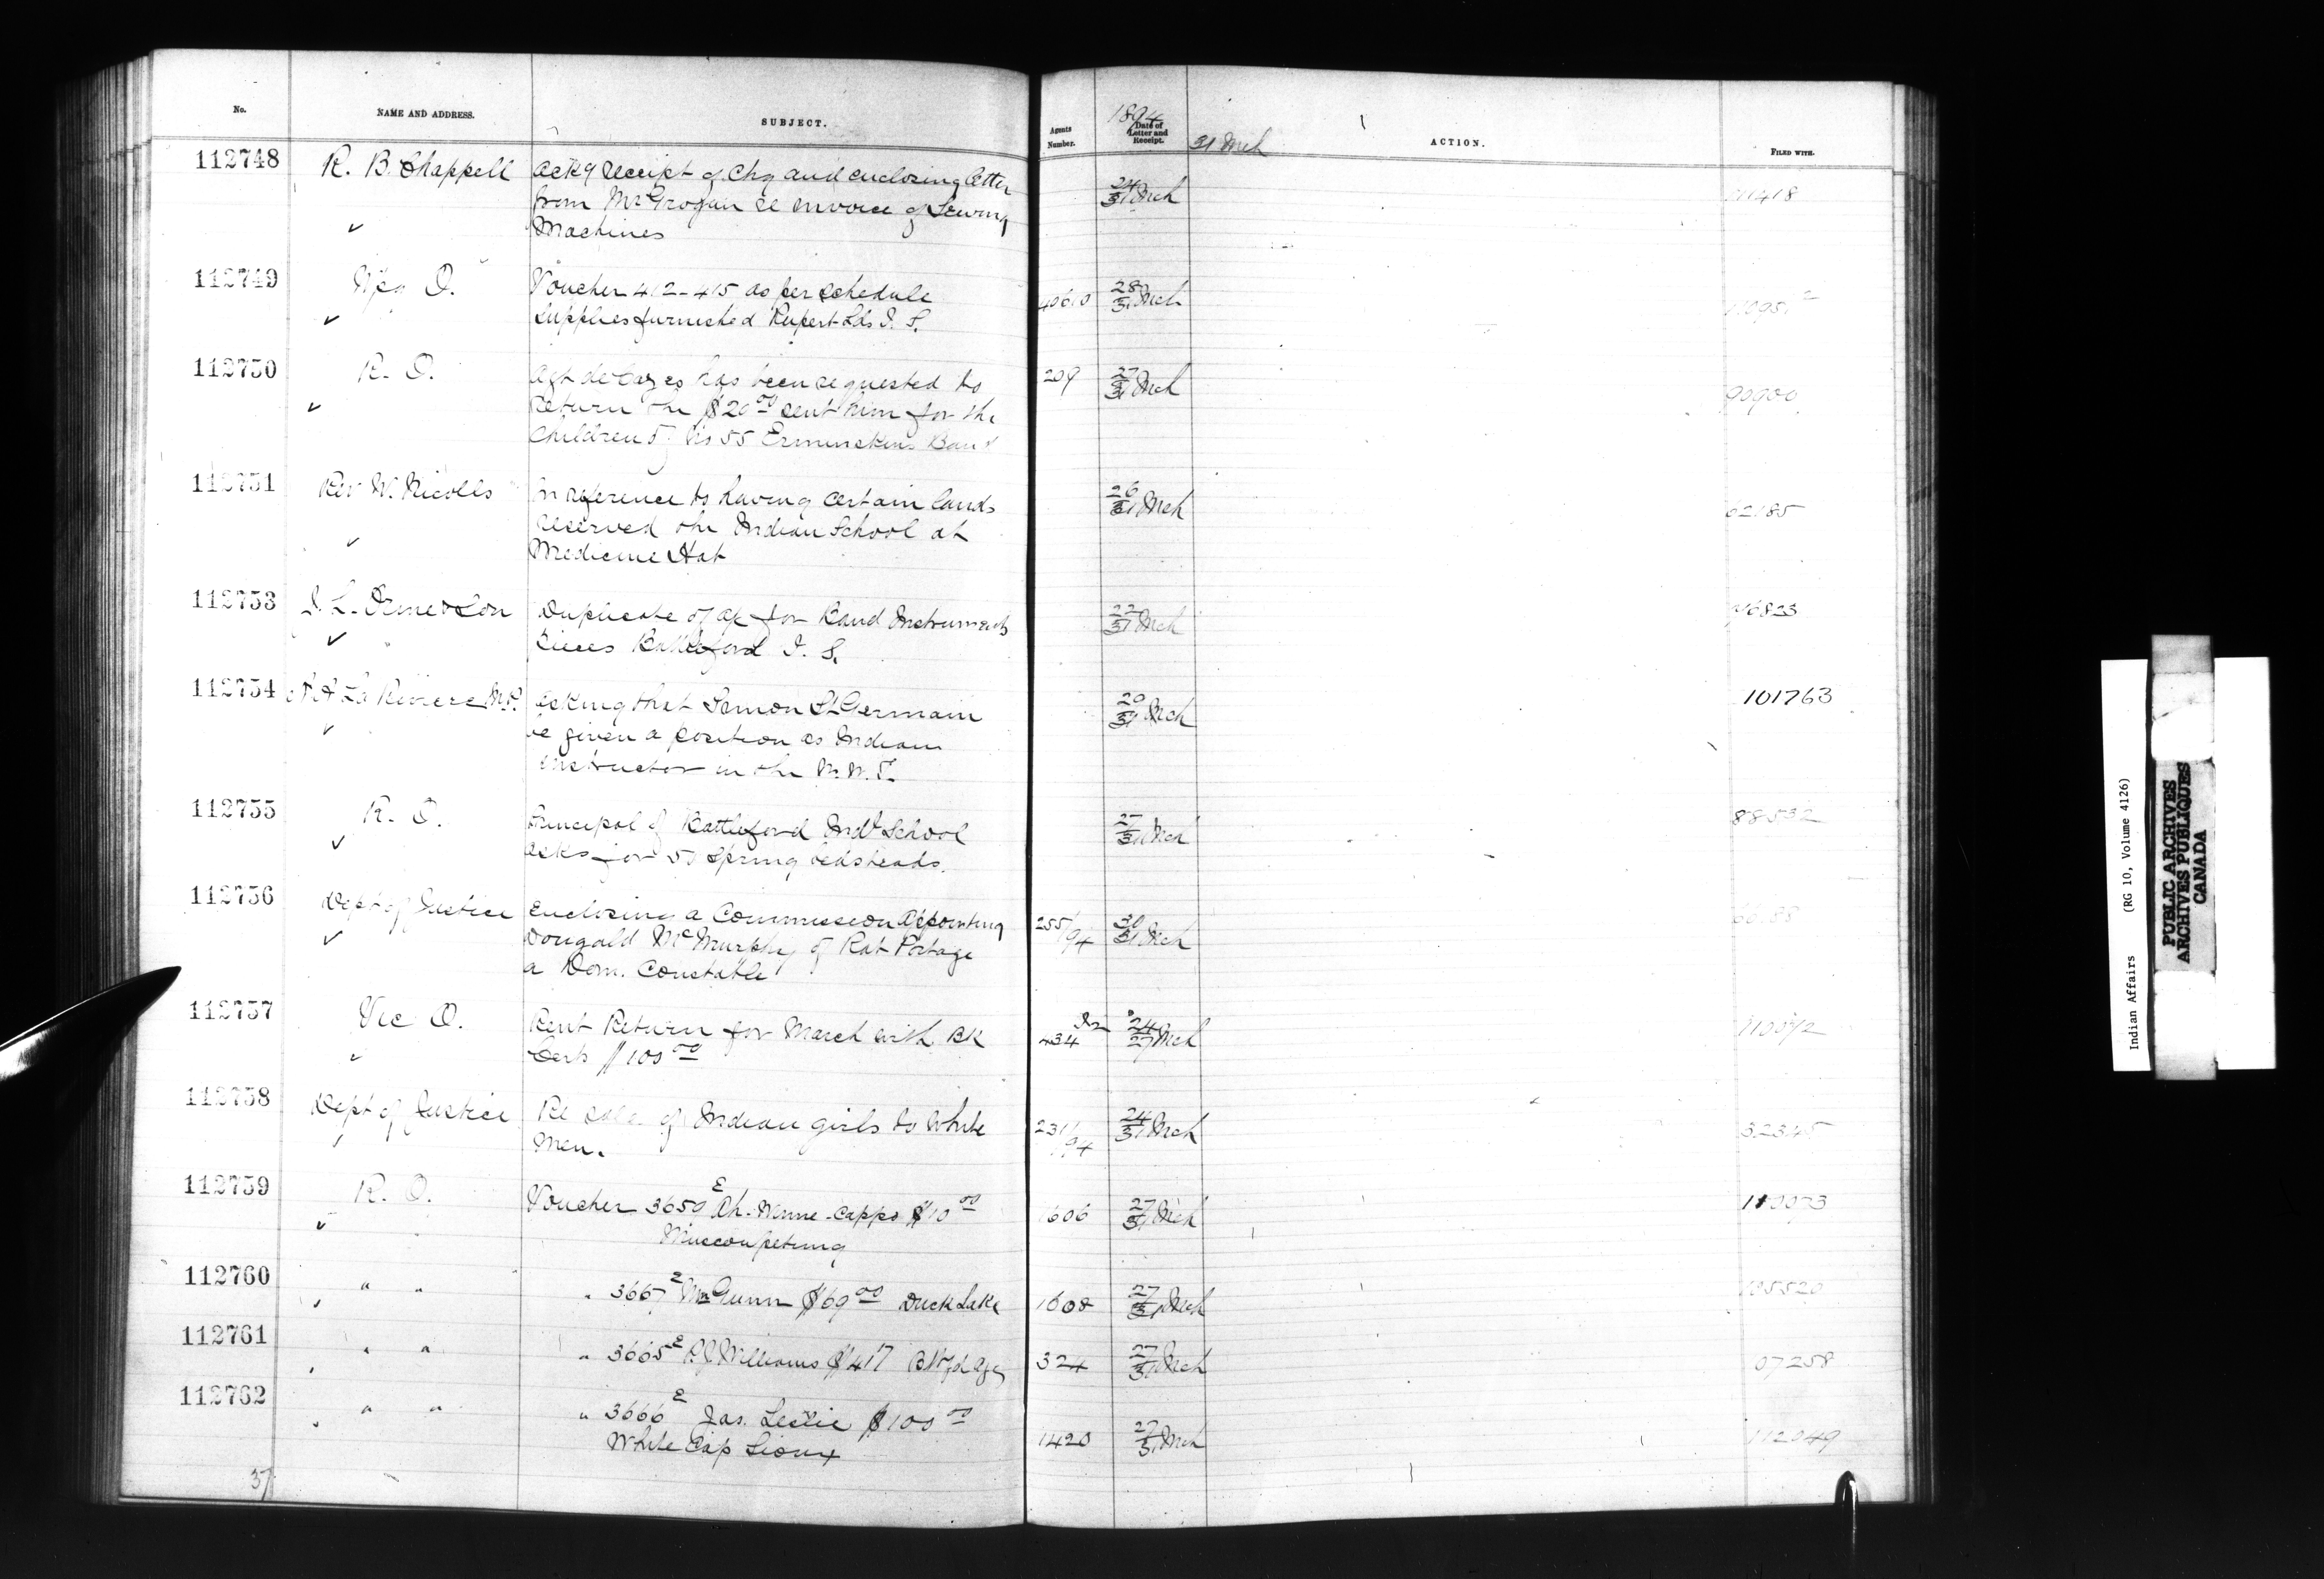 No.
NAME AND ADDRESS.
SUBJECT.
Agents Number.
1894
Date of Letter and Receipt.
31 Mch
ACTION.
FILED WITH.
112748
R. B. Chappell
Ackg receipt of Chq and enclosing letter
from Mr Grogan re invoice of Sewing
Machines
24/31 Mch
11418
112749
Wpg O.
Voucher 412-415 as per schedule
supplies furnished Ruperts Lds I. S.
40610
28/31 Mch
112750
R. O.
Agt de Cazes has been requested to
return the $20.00 sent him for the
Children of No 55 Ermineskins Band
209
27/31 Mch
90900
112751
Rev W. Nicolls
In reference to having certain lands
reserved the Indian School at
Medicine Hat
26/31 Mch
62185
112753
Duplicate of a/c for Band Instruments
Pieces Battleford I. S.
22/31 Mch
76823
112754
A A La Riviere M.P.
Asking that Simon St Germain
be given a position as Indian
instructor in the N.W.T.
20/31 Mch
101763
112755
R. O.
Principal of Battleford Indl School
asks for 50 Spring bedsteads.
27/31 Mch
88532
112756
Dept of Justice
Enclosing a Commission Appointing
Dougald McMurphy of Rat Portage
a Dom. Constable
255/94
30/31 Mch
112757
Vic O.
Rent Return for March with Bk
Certs $100.00
434
24/27 Mch
112758
Dept of Justice
Re sale of Indian girls to White
Men.
231/94
24/31 Mch
32345
112759
R. O.
Voucher 3659 E Ch. Winne-capps $10.00
Muscowpetung
1606
27/31 Mch
112760
" "
" 3667 E McGunn $69.00 Duck Lake
1608
27/31 Mch
105520
112761
" "
" 3665 E P. J. Williams $417 Btlfd Agy
324
27/31 Mch
07258
112762
" "
" 3666 E Jas. Leslie $100.00
White Cap Sioux
1420
27/31 Mch
112049
37
Indian Affairs (RG 10, Volume 4126)
PUBLIC ARCHIVES
ARCHIVES PUBLIQUES
CANADA